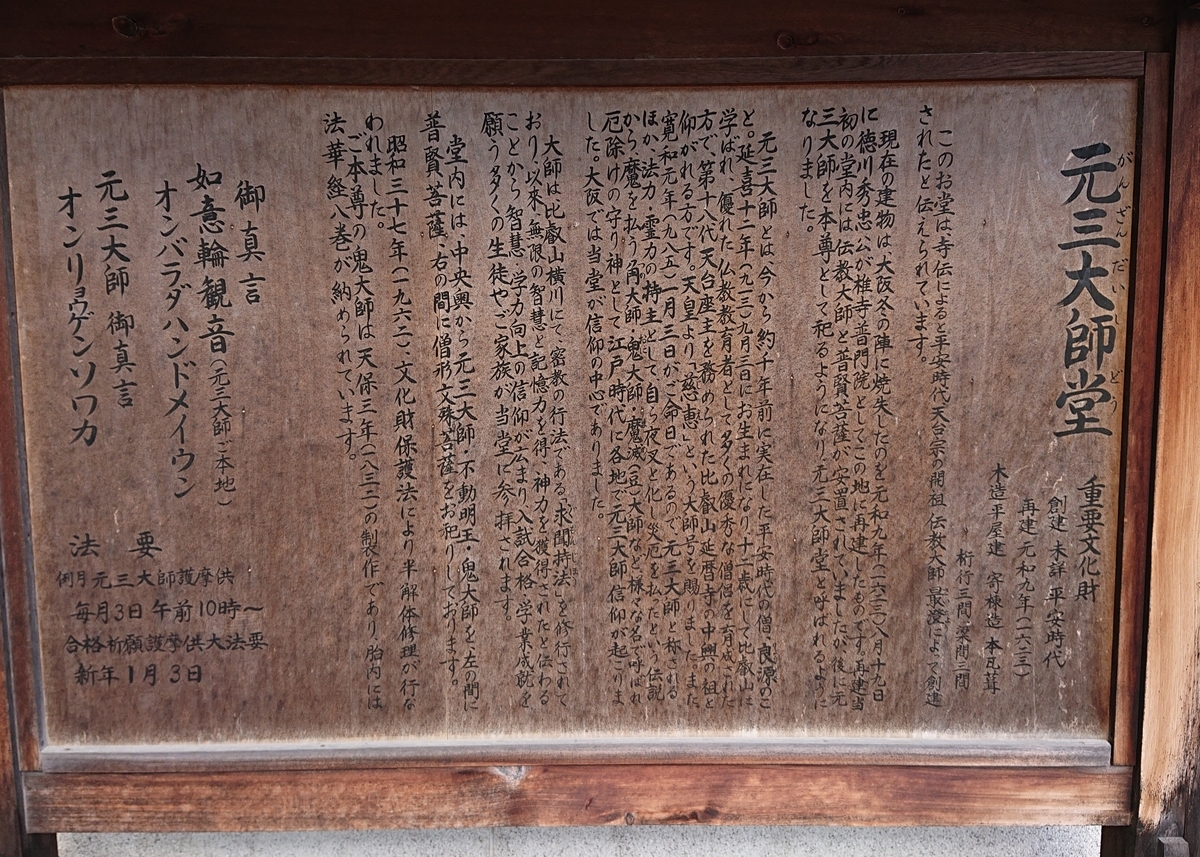 元三大師堂
がんざんだいしどう
重要文化財
創建 未詳 平安時代
再建 元和九年(一六二三)
木造平屋建 寄棟造 本瓦葺
桁行三間、梁間三間
このお堂は寺伝によると平安時代天台宗の開祖 伝教大師 最澄によって創建
されたと伝えられています。
現在の建物は大阪冬の陣に焼失したのを元和九年(一六二三)八月十九日
に徳川秀忠公が椎寺普門院としてこの地に再建したものです。再建当
初の堂内には伝教大師と普賢菩薩が安置されていましたが、後に元
三大師を本尊として祀るようになり元三大師堂と呼ばれるように
なりました。
元三大師とは今から約千年前に実在した平安時代の僧、良源のこ
と。延喜十二年(九一二)九月三日にお生まれになり十二歳にして比叡山に
学ばれ、優れた仏教教育者として多くの優秀な僧侶を育成された
方で、第十八代天台座主を務められた比叡山延暦寺の中興の祖と
仰がれる方です。天皇より「慈恵」という大師号を賜りました。また
寛和元年(九八五)一月三日がご命日であるので、元三大師と称される
ほか、法力・霊力の持主として自ら夜叉と化し災厄を払ったという伝説
から、魔を払う角大師、鬼大師、魔滅(豆)大師など様々な名で呼ばれ
厄除けの守り神として江戸時代に各地で元三大師信仰が起こりま
した。大阪では当堂が信仰の中心でありました。
大師は比叡山横川にて、密教の行法である「求聞持法」を修行されて
おり、以来、無限の智慧と記憶力を得、神力を獲得されたと伝わる
ことから智慧、学力向上の信仰が広まり入試合格・学業成就を
願う多くの生徒やご家族が当堂に参拝されます。
堂内には、中央奥から元三大師・不動明王・鬼大師を、左の間に
普賢菩薩、右の間に僧形文殊菩薩をお祀りしております。
昭和三十七年(一九六二)、文化財保護法により半解体修理が行な
われました。
ご本尊の鬼大師は天保三年(一八三二)の製作であり、胎内には
法華経八巻が納められています。
御真言
如意輪観音(元三大師ご本地)
オンバラダハンドメイウン
元三大師 御真言
オンリョウゲンソワカ
法 要
例月元三大師護摩供
毎月3日 午前10時~
合格祈願護摩供大法要
新年1月3日